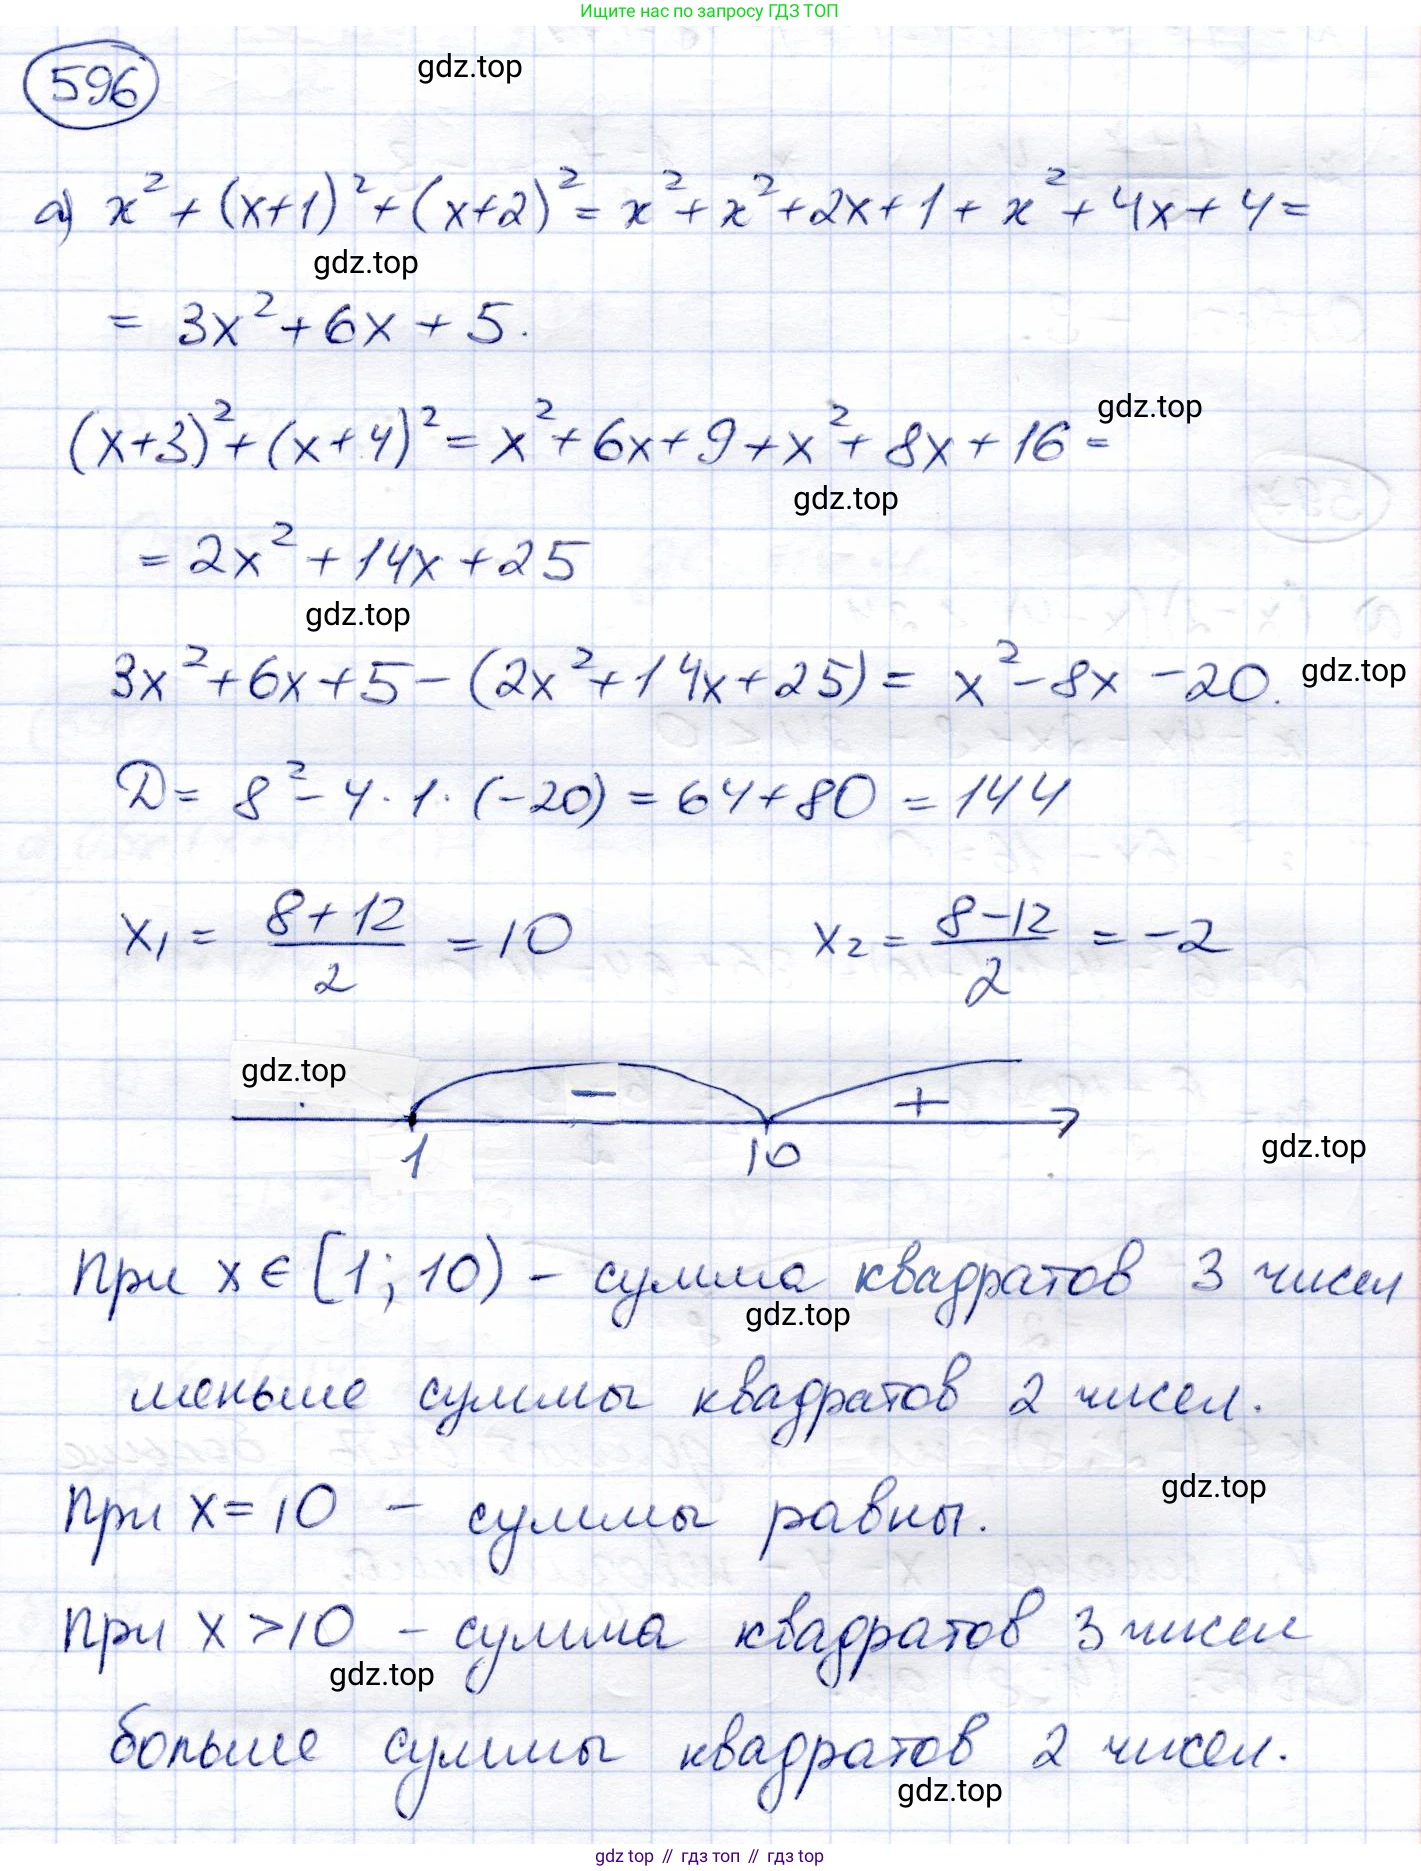 Ищите нас по запросу ГДЗ ТОП
596
gdz.top
а) x² + (x+1)² + (x+2)² = x² + x² + 2x + 1 + x² + 4x + 4 =
gdz.top
= 3x² + 6x + 5.
gdz.top
(x+3)² + (x+4)² = x² + 6x + 9 + x² + 8x + 16 =
gdz.top
= 2x² + 14x + 25
gdz.top
3x² + 6x + 5 - (2x² + 14x + 25) = x² - 8x - 20.
gdz.top
D = 8² - 4 · 1 · (-20) = 64 + 80 = 144
x₁ = (8+12)/2 = 10 x₂ = (8-12)/2 = -2
gdz.top
− +
1 10
gdz.top
при x ∈ [1; 10) - сумма квадратов 3 чисел
gdz.top
меньше суммы квадратов 2 чисел.
gdz.top
при x = 10 - суммы равны.
при x > 10 - сумма квадратов 3 чисел
gdz.top
больше суммы квадратов 2 чисел.
gdz.top
gdz top // гдз топ // gdz top